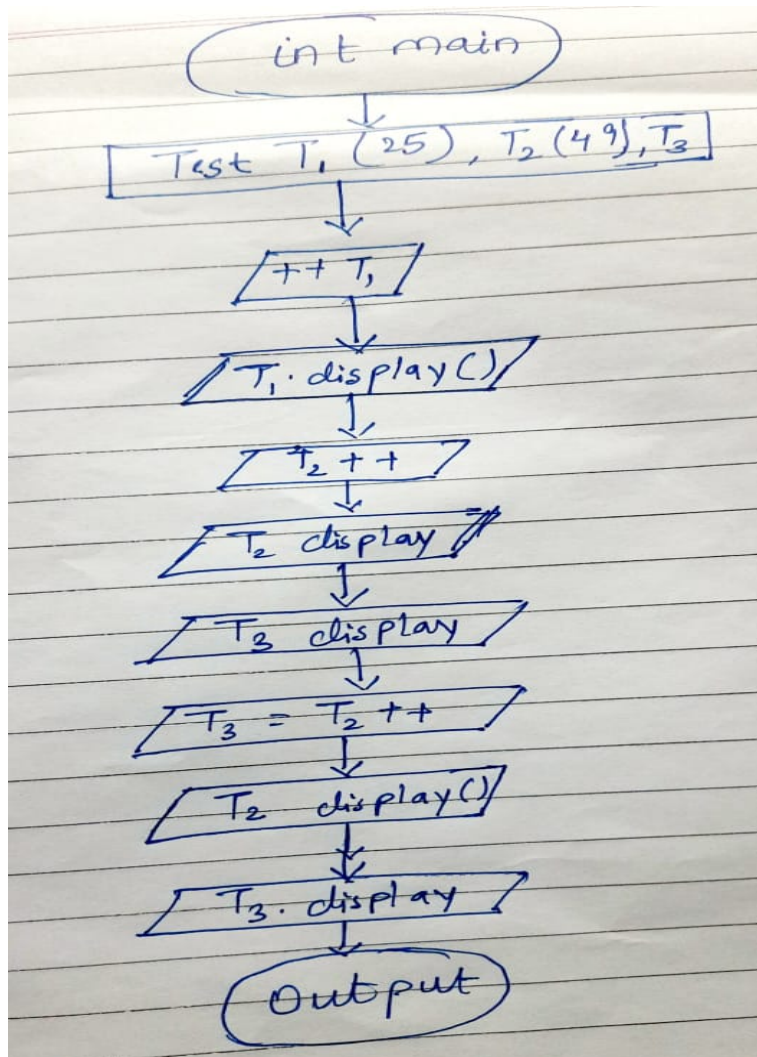 int main
Test T₁ (25), T₂ (49), T₃
++ T₁
T₁. display ()
T₂ ++
T₂ display
T₃ display
T₃ = T₂ ++
T₂ display()
T₃. display
Output